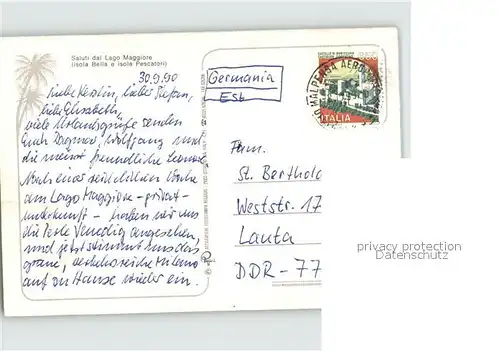 Saluti dal Lago Maggiore
(Isola Bella e Isole Pescatori)
30.9.90
Germania
Est
MALPENSA AEROPORTO
ITALIA
liebe Kerstin, lieber Stefan,
liebe Elisabeth,
viele Urlaubsgrüße senden
Euch Dagmar, Wolfgang und
die meist freundliche
Nach einer Woche
am Lago Maggiore - privat-
unterkunft - haben wir uns
die Perle Venedig angesehen
und jetzt stimmt uns das
graue, verkehrsreiche Milano
auf zu Hause wieder ein.
Fam.
St. Berthold
Weststr. 17
Lauta
DDR-77
privacy protection
Datenschutz